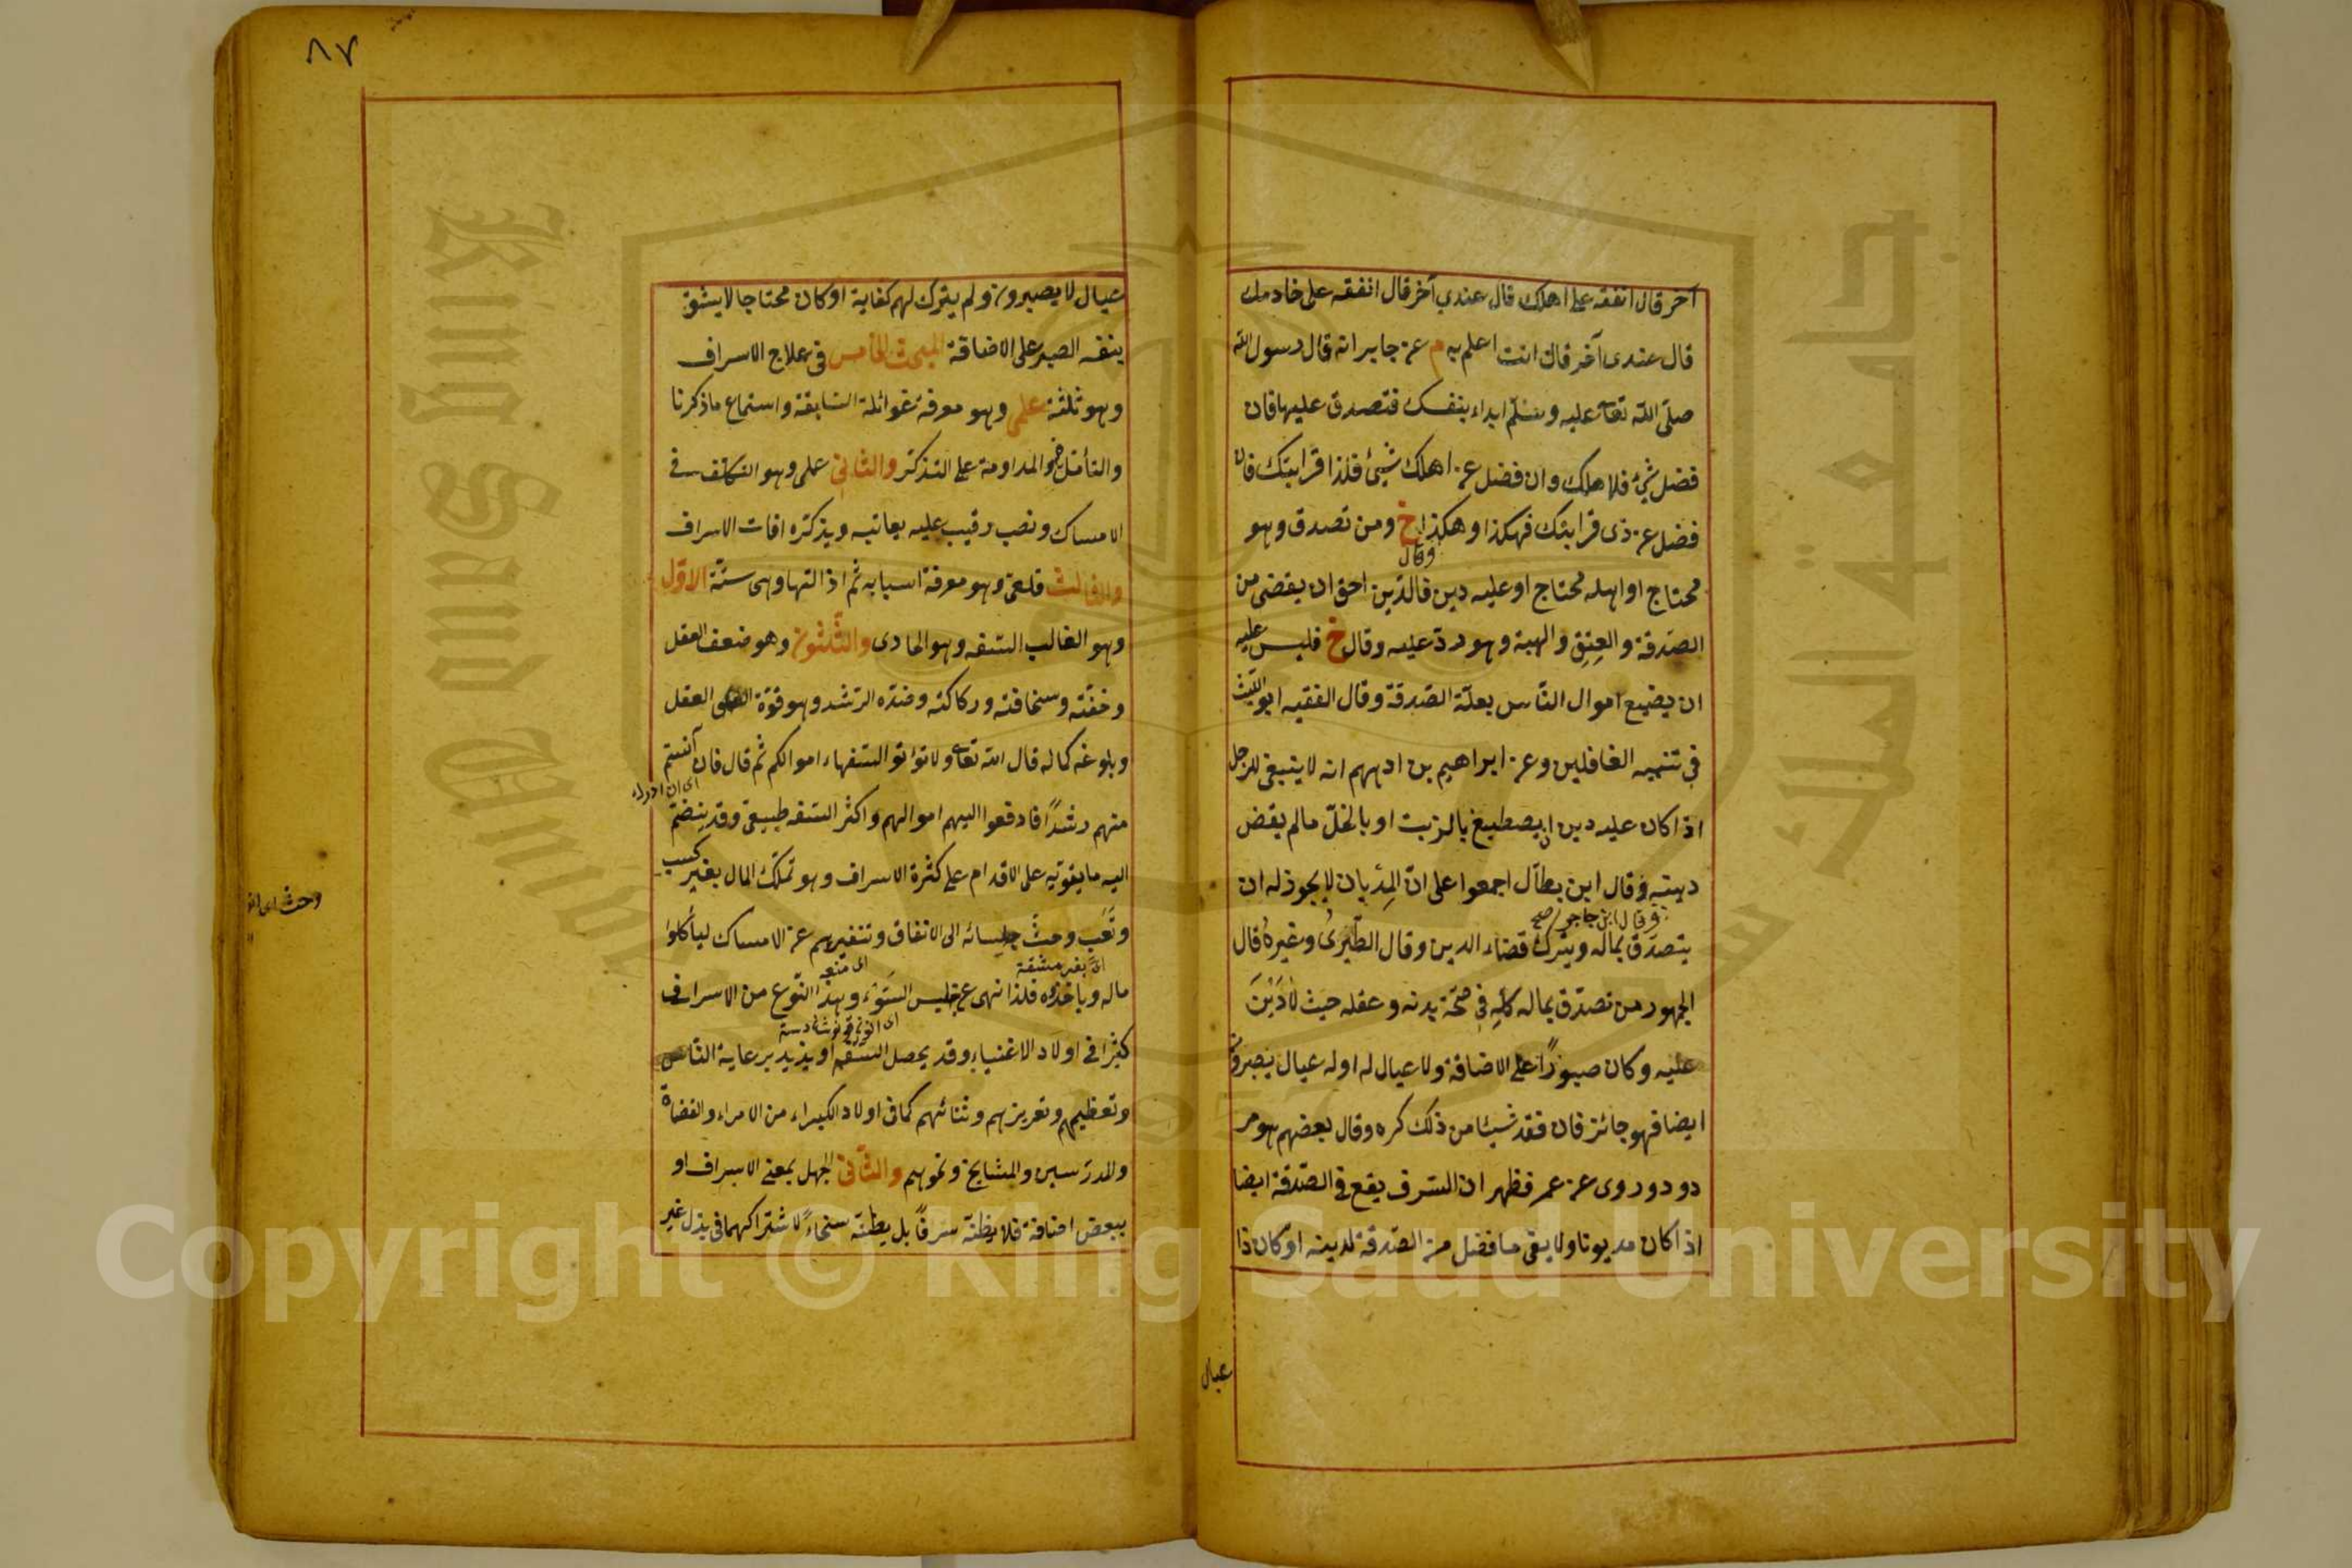 آخر قال انفقه على اهلك قال عندي آخر قال انفقه على خادمك
قال عندى آخر قال انت اعلم به م عن جابر انه قال رسول الله
صلّى الله تعالى عليه وسلّم ابداء بنفسك فتصدق عليها فان
فضل شئ فلاهلك وان فضل عن اهلك شيئ فلذا قرابتك فان
فضل عن ذى قرابتك فهكذا وهكذا خ ومن تصدق وهو
وقال
محتاج او اهله محتاج او عليه دين فالدّين احق ان يقضى من
الصّدقة والعِتِق والهبة وهو ردّ عليه وقال خ فليس عليه
ان يضيع اموال النّاس بعلّة الصّدقة وقال الفقيه ابو اللّيث
فى تنبيه الغافلين وعن ابراهيم بن ادهم انه لا ينبغى للرجل
اذا كان عليه دين ان يصطبغ بالزيت او بالخلّ مالم يقض
دينه وقال ابن بطّال اجمعوا على انّ المِدْيان لا يجوز له ان
يتصدّق بماله ويترك قضاء الدين وقال الطّبرىُ وغيرهُ قال
الجمهور من تصدّق بماله كلّهِ فى صحّة بدنه وعقله حيث لا دَيْنَ
عليه وكان صبورًا على الاضاقة ولا عيال له او له عيال يصبرون
ايضا فهو جائز فان فقد شيئا من ذلك كره وقال بعضهم هو مر
دود وروى عن عمر فظهر ان السّرف يقع فى الصّدقة ايضا
اذا كان مديونا ولا يفى ما فضل من الصّدقة لدينه او كان ذا
عيال
٨٧
عيال لا يصبرون ولم يترك لهم كفاية او كان محتاجا لا يشق
بنفسه الصبر على الاضاقة المبحث الخامس فى علاج الاسراف
وهو ثلثة علمى وهو معرفة غوائله السّابقة واستماع ماذكرنا
والتأمّل فيه والمداومة على التذكّر والثانى عملى وهو التكلّف فى
الامساك ونصب رقيب عليه يعاتبه ويذكّره افات الاسراف
والثالث قلعىّ وهو معرفة اسبابه ثم ازالتها وهى ستّة الاوّل
وهو الغالب السّفه وهو الحادى والثّلثون وهو ضعف العقل
وخفّته وسخافته وركاكته وضدّه الرّشد وهو قوّة العقل
وبلوغه كماله قال الله تعالى ولا تؤتوا السّفهاء اموالكم ثم قال فان آنستم
منهم رشدًا فادفعوا اليهم اموالهم واكثر السّفه طبيعى وقد ينضمّ
اليه ما يقوّيه على الاقدام على كثرة الاسراف وهو تملّك المال بغير كسب
وتَعَب وحثّ جلسائه الى الانفاق وتنفيرهم عن الامساك ليأكلوا
اى بغير مشقة
ماله وياخذوه فلذا نهى عن جليس السّوْء وهذا النّوع من الاسراف
كثير فى اولاد الاغنياء وقد يحصل السّفه او يزيد برعاية النّاس
وتعظيمهم وتعزيزهم وثنائهم كما فى اولاد الكبراء من الامراء والقضاة
والمدرّسين والمشايخ ونحوهم والثّانى الجهل بمعنى الاسراف او
ببعض اصنافه فلا يظنّه سرفًا بل يظنّه سخاءً لاشتراكهما فى بذل غير
Copyright © King Saud University